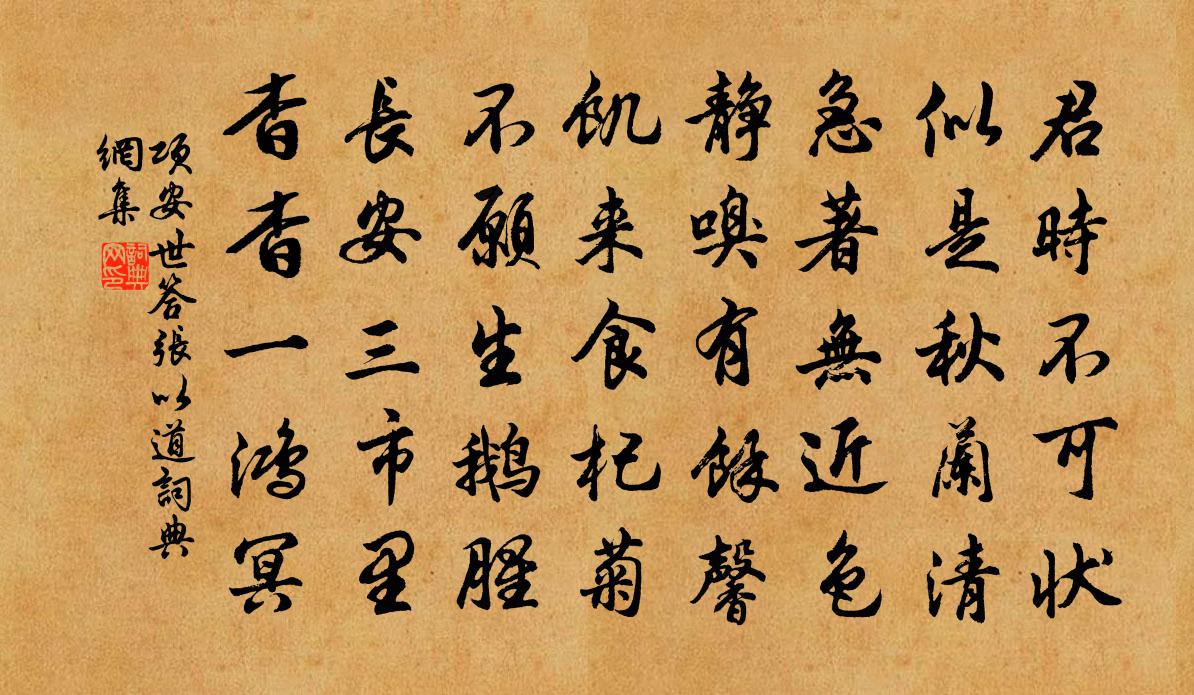 君時不可状
似是秋蘭清
急著無近色
静嗅有餘馨
飢来食杞菊
不願生鵝腥
長安三市里
杳杳一鴻冥
項安世答張以道詞典
網集
詞典
网印